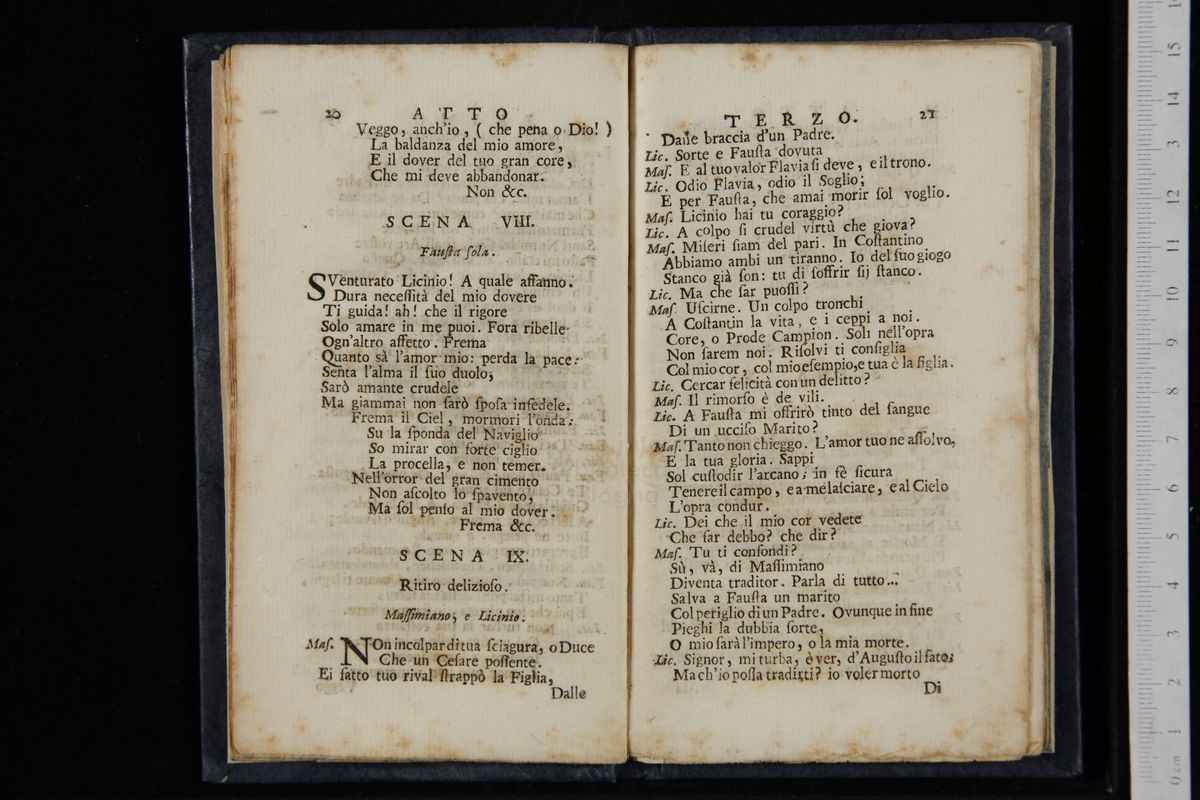 20 ATTO
Veggo, anch'io, ( che pena o Dio! )
La baldanza del mio amore,
E il dover del tuo gran core,
Che mi deve abbandonar.
Non &c.
SCENA VIII.
Fauſta ſola.
SVenturato Licinio! A quale affanno.
Dura neceſſità del mio dovere
Ti guida! ah! che il rigore
Solo amare in me puoi. Fora ribelle
Ogn'altro affetto. Frema
Quanto sà l'amor mio: perda la pace:
Senta l'alma il ſuo duolo;
Sarò amante crudele
Ma giammai non ſarò ſpoſa infedele.
Frema il Ciel, mormori l'onda:
Su la ſponda del Naviglio
So mirar con forte ciglio
La procella, e non temer.
Nell'orror del gran cimento
Non aſcolto lo ſpavento,
Ma ſol penſo al mio dover.
Frema &c.
SCENA IX.
Ritiro delizioſo.
Maſſimiano, e Licinio.
Maſ. NOn incolpar di tua ſciagura, o Duce
Che un Ceſare poſſente.
Ei fatto tuo rival ſtrappò la Figlia,
Dalle
TERZO. 21
Dalle braccia d'un Padre.
Lic. Sorte e Fauſta dovuta
Maſ. E al tuo valor Flavia ſi deve, e il trono.
Lic. Odio Flavia, odio il Soglio;
E per Fauſta, che amai morir ſol voglio.
Maſ. Licinio hai tu coraggio?
Lic. A colpo ſi crudel virtù che giova?
Maſ. Miſeri ſiam del pari. In Coſtantino
Abbiamo ambi un tiranno. Io del ſuo giogo
Stanco già ſon: tu di ſoffrir ſij ſtanco.
Lic. Ma che far puoſſi?
Maſ Uſcirne. Un colpo tronchi
A Coſtantin la vita, e i ceppi a noi.
Core, o Prode Campion. Soli nell'opra
Non ſarem noi. Riſolvi ti conſiglia
Col mio cor, col mio eſempio, e tua è la figlia.
Lic. Cercar felicità con un delitto?
Maſ. Il rimorſo è de vili.
Lic. A Fauſta mi offrirò tinto del ſangue
Di un ucciſo Marito?
Maſ. Tanto non chieggo. L'amor tuo ne aſſolvo,
E la tua gloria. Sappi
Sol cuſtodir l'arcano; in fè ſicura
Tenere il campo, e a me laſciare, e al Cielo
L'opra condur.
Lic. Dei che il mio cor vedete
Che far debbo? che dir?
Maſ. Tu ti confondi?
Sù, và, di Maſſimiano
Diventa traditor. Parla di tutto...
Salva a Fauſta un marito
Col periglio di un Padre. Ovunque in fine
Pieghi la dubbia ſorte,
O mio ſarà l'impero, o la mia morte.
Lic. Signor, mi turba, è ver, d'Auguſto il fato;
Ma ch'io poſſa tradirti? io voler morto
Di